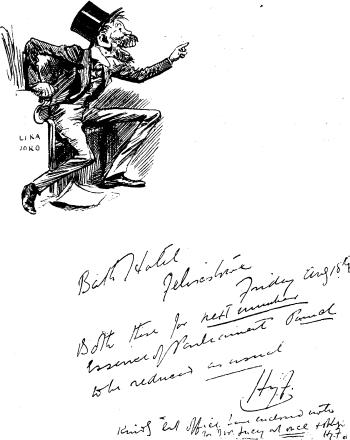 LIKA
JOKO
Bath Hotel
Felixstowe
Friday Aug 18th
Both these for next number
Essence of Parliament Panel
to be reduced as usual
Hy. F.
Kindly office enclosed note
to Mr. Lucy at once
Hy. F.